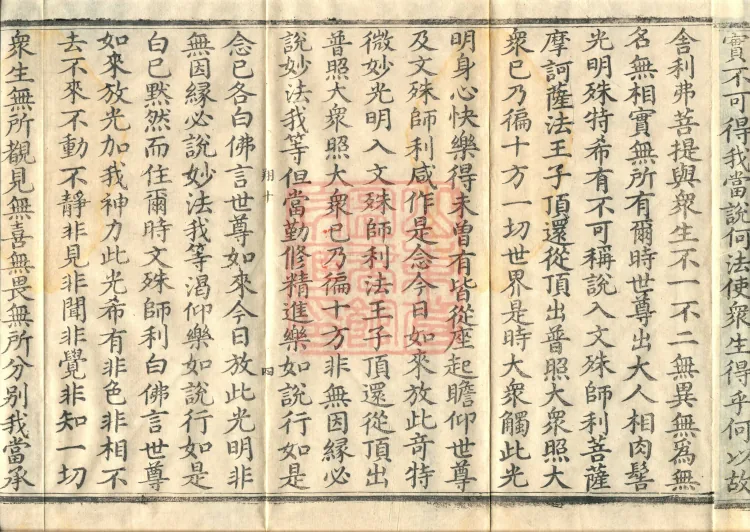 實不可得我當說何法使衆生得乎何以故
舍利弗菩提與衆生不一不二無異無爲無
名無相實無所有爾時世尊出大人相肉髻
光明殊特希有不可稱說入文殊師利菩薩
摩訶薩法王子頂還從頂出普照大衆照大
衆已乃徧十方一切世界是時大衆觸此光
明身心快樂得未曾有皆從座起瞻仰世尊
及文殊師利咸作是念今日如來放此奇特
微妙光明入文殊師利法王子頂還從頂出
普照大衆照大衆已乃徧十方非無因緣必
說妙法我等但當勤修精進樂如說行如是
翔十 四
念已各白佛言世尊如來今日放此光明非
無因緣必說妙法我等渴仰樂如說行如是
白已默然而住爾時文殊師利白佛言世尊
如來放光加我神力此光希有非色非相不
去不來不動不靜非見非聞非覺非知一切
衆生無所觀見無喜無畏無所分別我當承